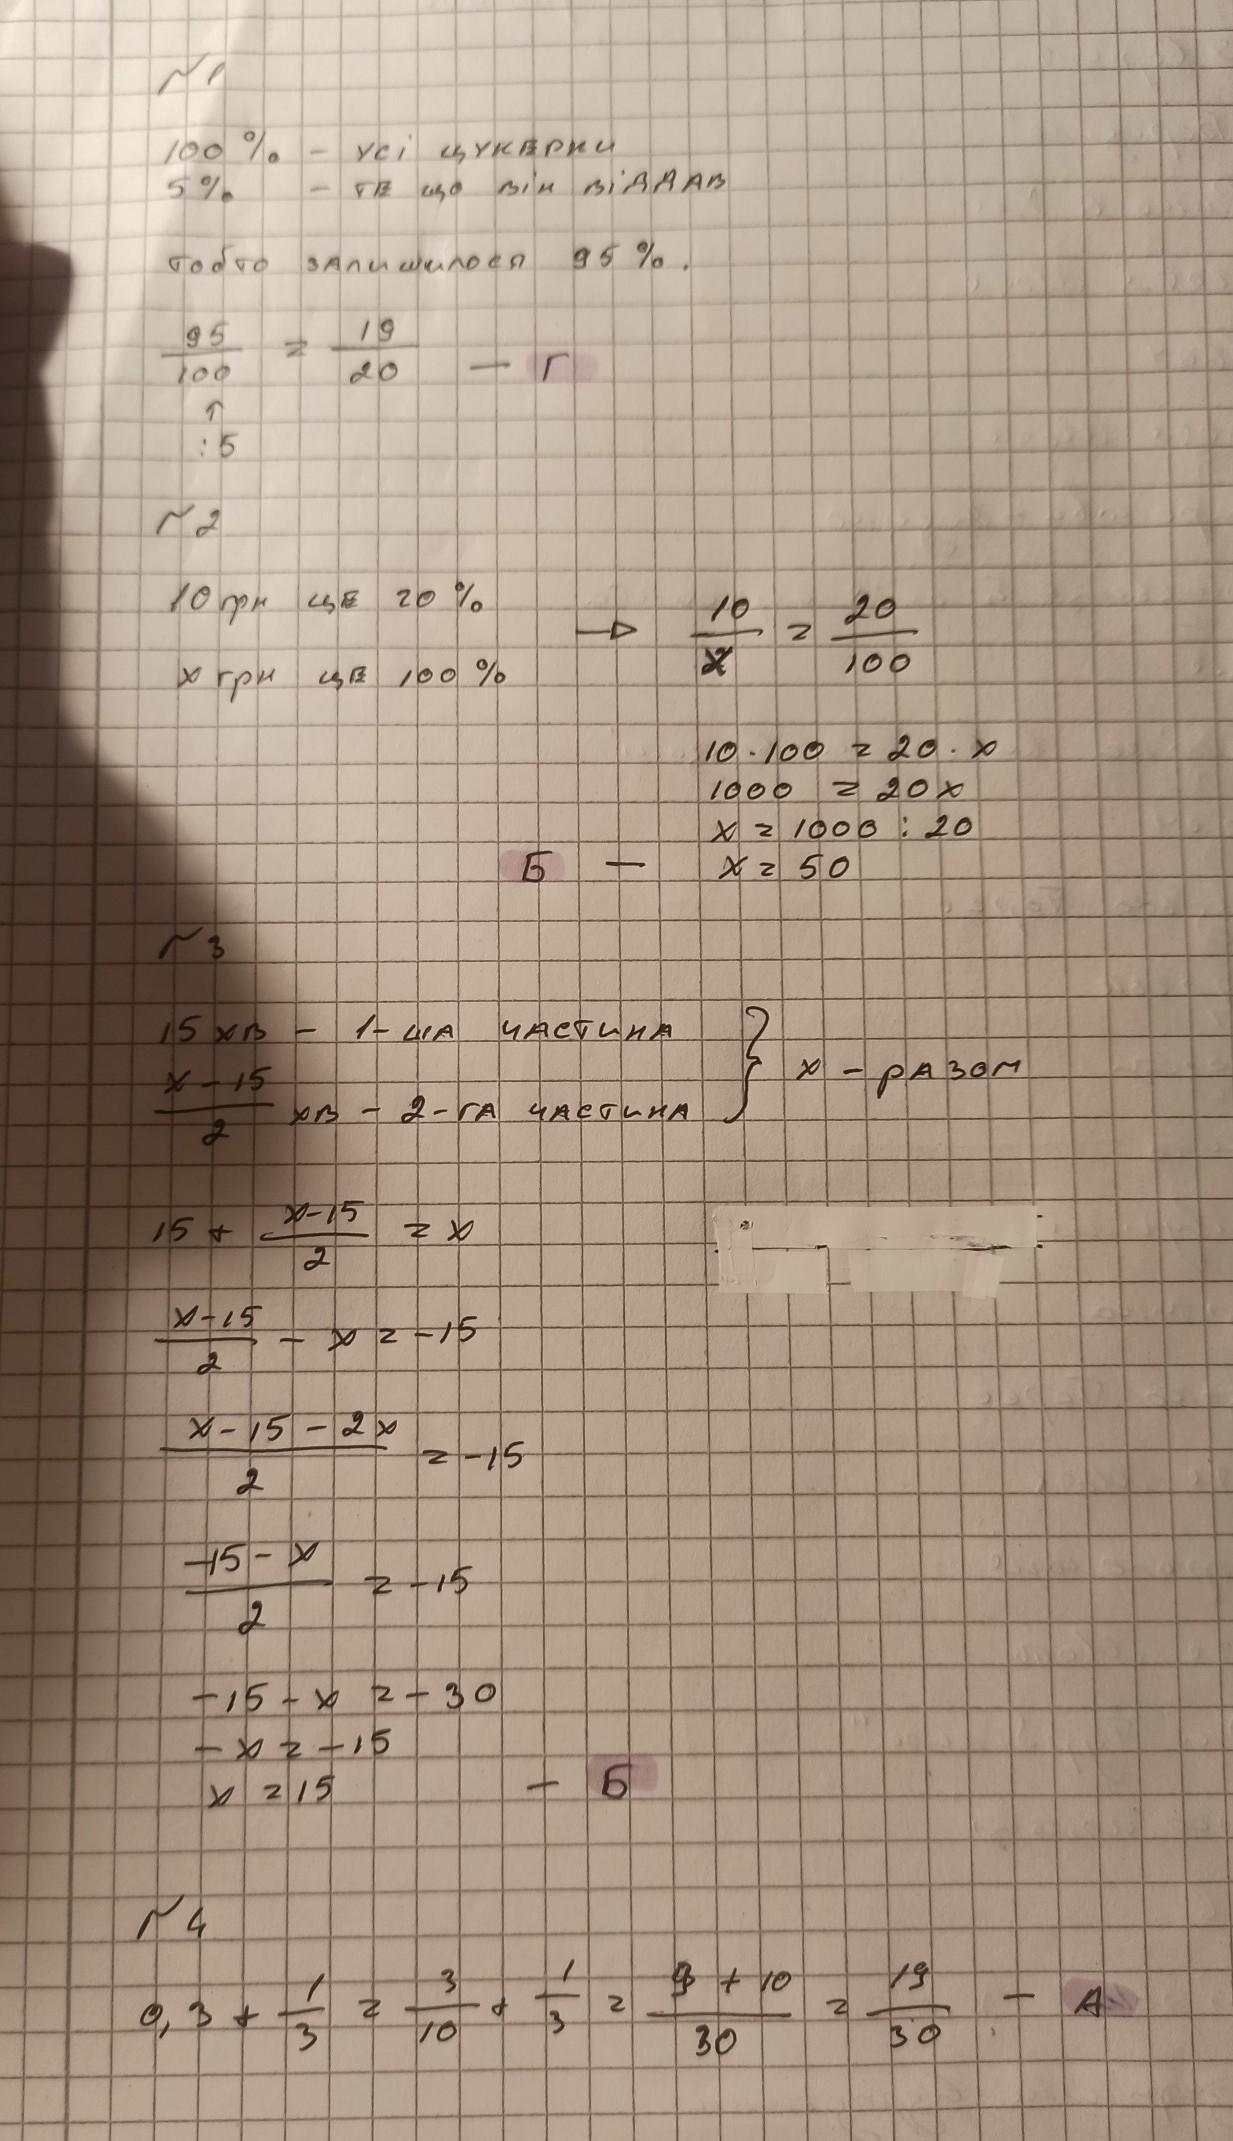 №1
100% – усі цукерки
5% – те що він віддав
тобто залишилося 95%.
95/100 = 19/20 – Г
↑
:5
№2
10 грн це 20%
х грн це 100%
→ 10/х = 20/100
10·100 = 20·х
1000 = 20х
х = 1000 : 20
Б – х = 50
№3
15 хв – 1-ша частина
(х – 15)/2 хв – 2-га частина
} х – разом
15 + (х–15)/2 = х
(х–15)/2 – х = –15
(х – 15 – 2х)/2 = –15
(–15 – х)/2 = –15
–15 – х = –30
–х = –15
х = 15 – Б
№4
0,3 + 1/3 = 3/10 + 1/3 = (9 + 10)/30 = 19/30 – А